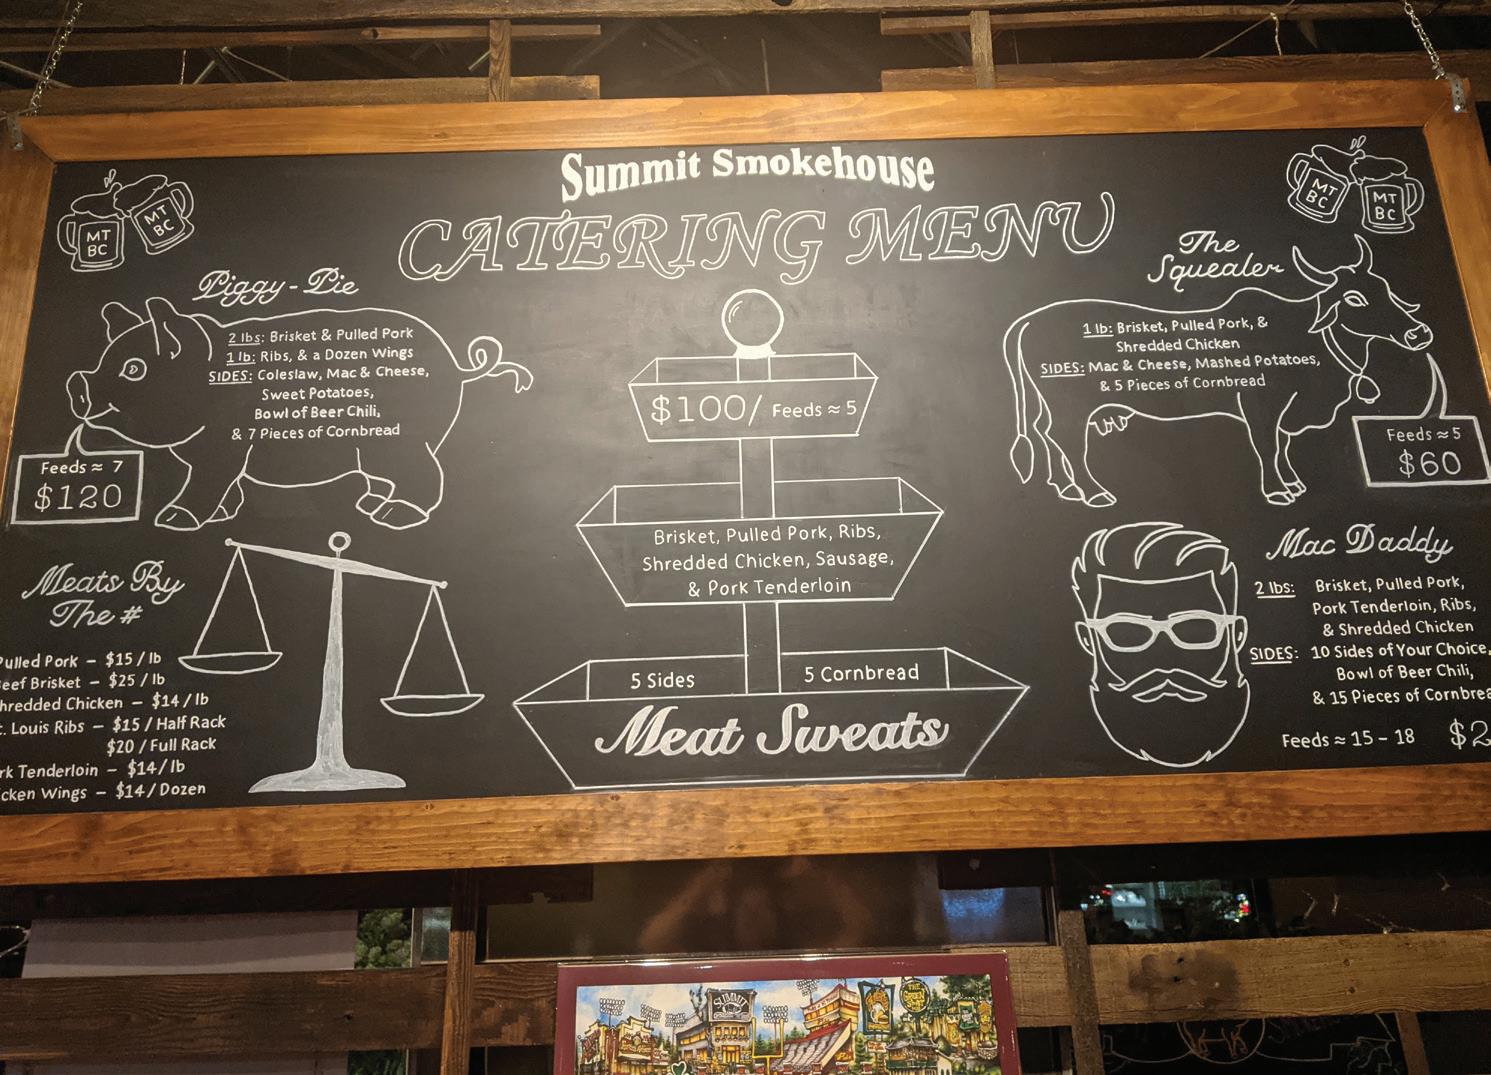 Summit Smokehouse
CATERING MENU
MT
BC
MT
BC
MT
BC
MT
BC
Piggy-Pie
2 lbs: Brisket & Pulled Pork
1 lb: Ribs, & a Dozen Wings
SIDES: Coleslaw, Mac & Cheese,
Sweet Potatoes,
Bowl of Beer Chili,
& 7 Pieces of Cornbread
Feeds ≈ 7
$120
Meats By
The #
Pulled Pork – $15/lb
Beef Brisket – $25/lb
Shredded Chicken – $14/lb
t. Louis Ribs – $15/Half Rack
$20/Full Rack
rk Tenderloin – $14/lb
cken Wings – $14/Dozen
$100/ Feeds ≈ 5
Brisket, Pulled Pork, Ribs,
Shredded Chicken, Sausage,
& Pork Tenderloin
5 Sides
5 Cornbread
Meat Sweats
The
Squealer
1 lb: Brisket, Pulled Pork, &
Shredded Chicken
SIDES: Mac & Cheese, Mashed Potatoes,
& 5 Pieces of Cornbread
Feeds ≈ 5
$60
Mac Daddy
2 lbs: Brisket, Pulled Pork,
Pork Tenderloin, Ribs,
& Shredded Chicken
SIDES: 10 Sides of Your Choice,
Bowl of Beer Chili,
& 15 Pieces of Cornbrea
Feeds ≈ 15 – 18 $2
SUMMIT
THE
GREEN